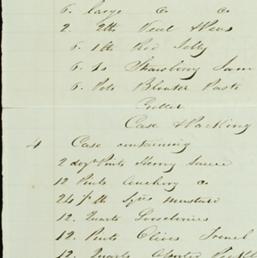 6. large Do Do
2. 2lb Veal & Peas
6. 1lb Red Jelly
6. Do Strawberry Jam
6. Pots Bloater Paste
Case & Packing
4 Case containing
2 dozn Pints Harvey Sauce
12 Pints Anchovy Do
24 lb Mustard
12. Quarts
12. Pints Olives French
12. Quarts